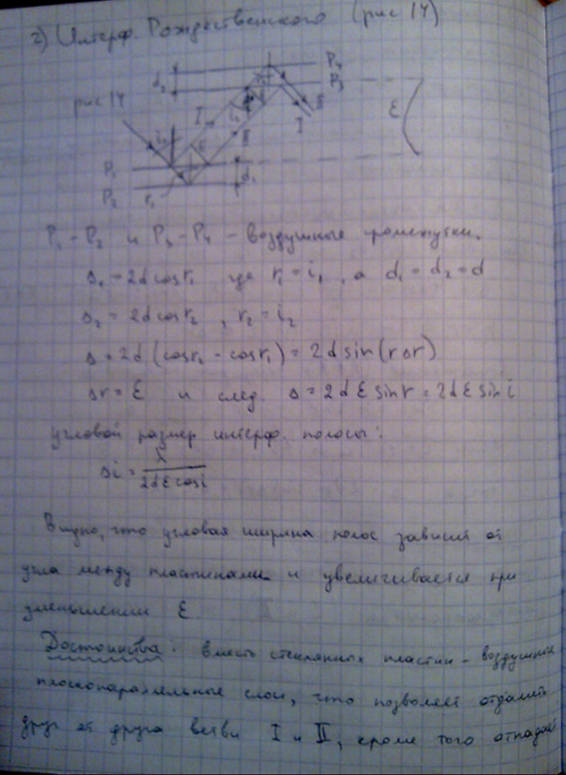 г) Интерф. Рождественского (рис 14)
рис 14
d₂
P₄
P₃
I
II
I
II
ε
P₁
P₂
r₁
d₁
P₁ - P₂ и P₃ - P₄ - воздушные промежутки.
Δ₁ = 2d cos r₁ где r₁ = i₁, а d₁ = d₂ = d
Δ₂ = 2d cos r₂, r₂ = i₂
Δ = 2d (cos r₂ - cos r₁) = 2d sin (r Δr)
Δr = ε и след. Δ = 2dε sin r = 2dε sin i
угловой размер интерф. полосы:
Δi = λ / 2dε cos i
Видно, что угловая ширина полос зависит от
угла между пластинами и увеличивается при
уменьшении ε
Достоинства: вместо стеклянных пластин - воздушные
плоскопараллельные слои, что позволяет отдалить
друг от друга ветви I и II, кроме того отпадает